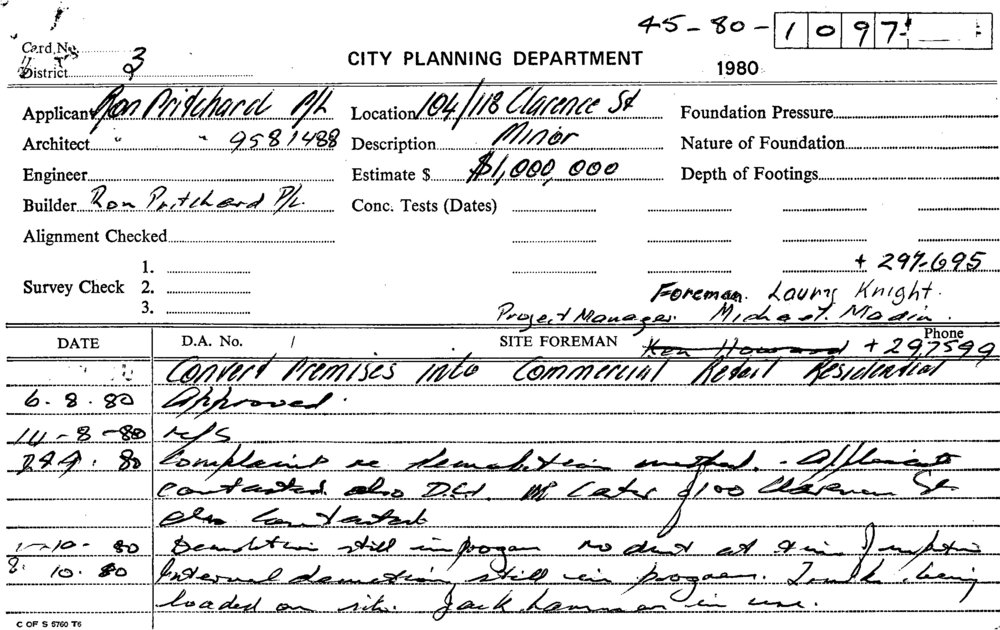 45-80-1097
Card No.
District 3
CITY PLANNING DEPARTMENT
1980
Applicant Ron Pritchard P/L
Location 104/118 Clarence St
Foundation Pressure
Architect " " 9581488
Description Minor
Nature of Foundation
Engineer
Estimate $ $1,000,000
Depth of Footings
Builder Ron Pritchard P/L.
Conc. Tests (Dates)
Alignment Checked
Survey Check 1.
2.
3.
+ 297-695
Foreman. Laury Knight.
Project Manager. Michael. Madin.
DATE D.A. No. / SITE FOREMAN Ken Howard Phone + 297599
Convert Premises into Commercial Retail Residential
6.8.80 Approved.
14-8-80 N/S
80 Complaint re demolition method. - Applicant
contacted also D.C.I. Mr Cater of 100 Clarence St
also contacted
1-10-80 Demolition still in progress no dust at time of inspection
8.10.80 Internal demolition still in progress. being
loaded on site. Jack hammer in use.
C OF S 5760 T6